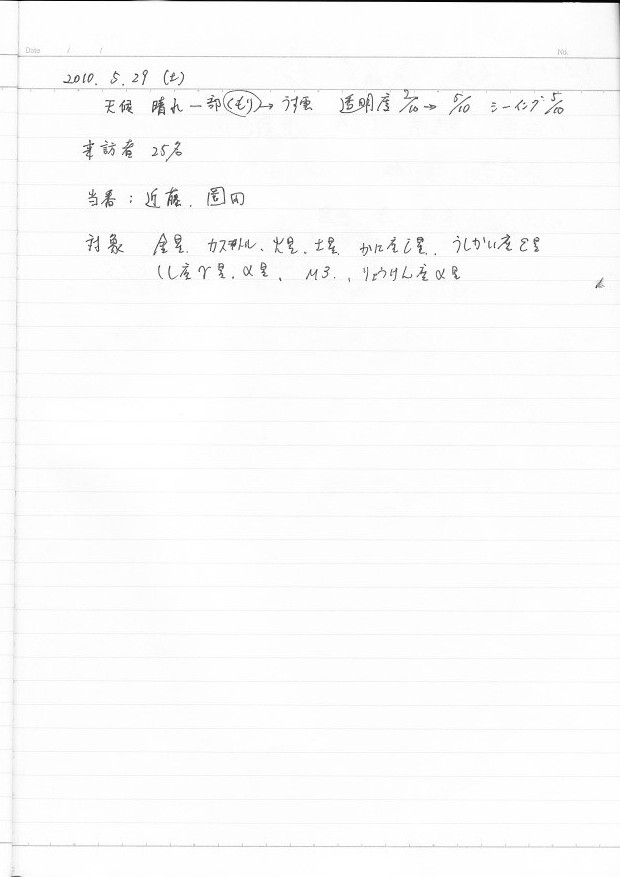 Date / / No.
2010. 5. 29 (土)
天候 晴れ一部くもり→うす雲 透明度 /10→5/10 シーイング 5/10
来訪者 25名
当番:近藤、園田
対象 金星、カストル、火星、土星、かに座ζ星、うしかい座ε星
しし座γ星、α星、M3、りょうけん座α星